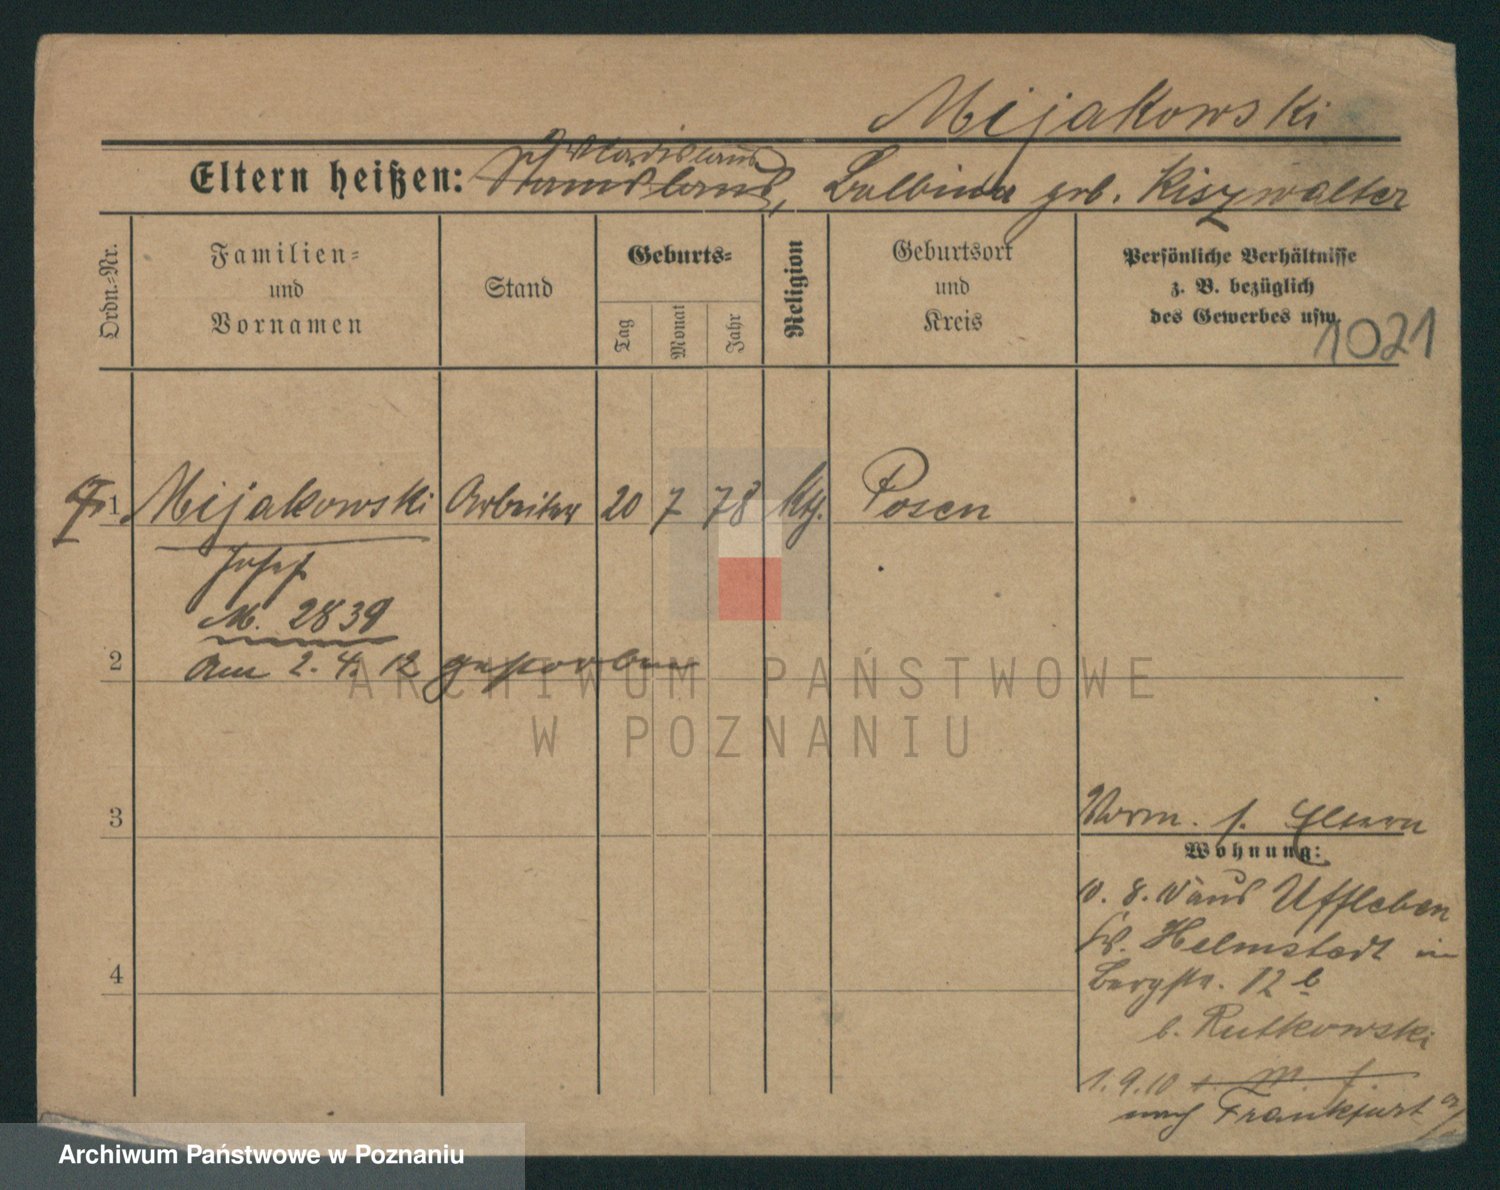 Mijakowski
Wladislaus
Eltern heißen: Stanislaus, Balbina geb. Kiszwalter
Ordn.-Nr.
Familien-
und
Vornamen
Stand
Geburts-
Tag
Monat
Jahr
Religion
Geburtsort
und
Kreis
Persönliche Verhältnisse
z. B. bezüglich
des Gewerbes usw.
1021
1 Mijakowski Arbeiter 20 7 78 kth. Posen
Josef
M. 2839
2
am 2. 4. 12 gestorben
3
Vorm. s. Eltern
Wohnung:
aus Uffleben
Kr. Helmstedt in
Bergstr. 12 b
4
b. Rutkowski
1.9.10
nach Frankfurt a/
ARCHIWUM PAŃSTWOWE
W POZNANIU
Archiwum Państwowe w Poznaniu